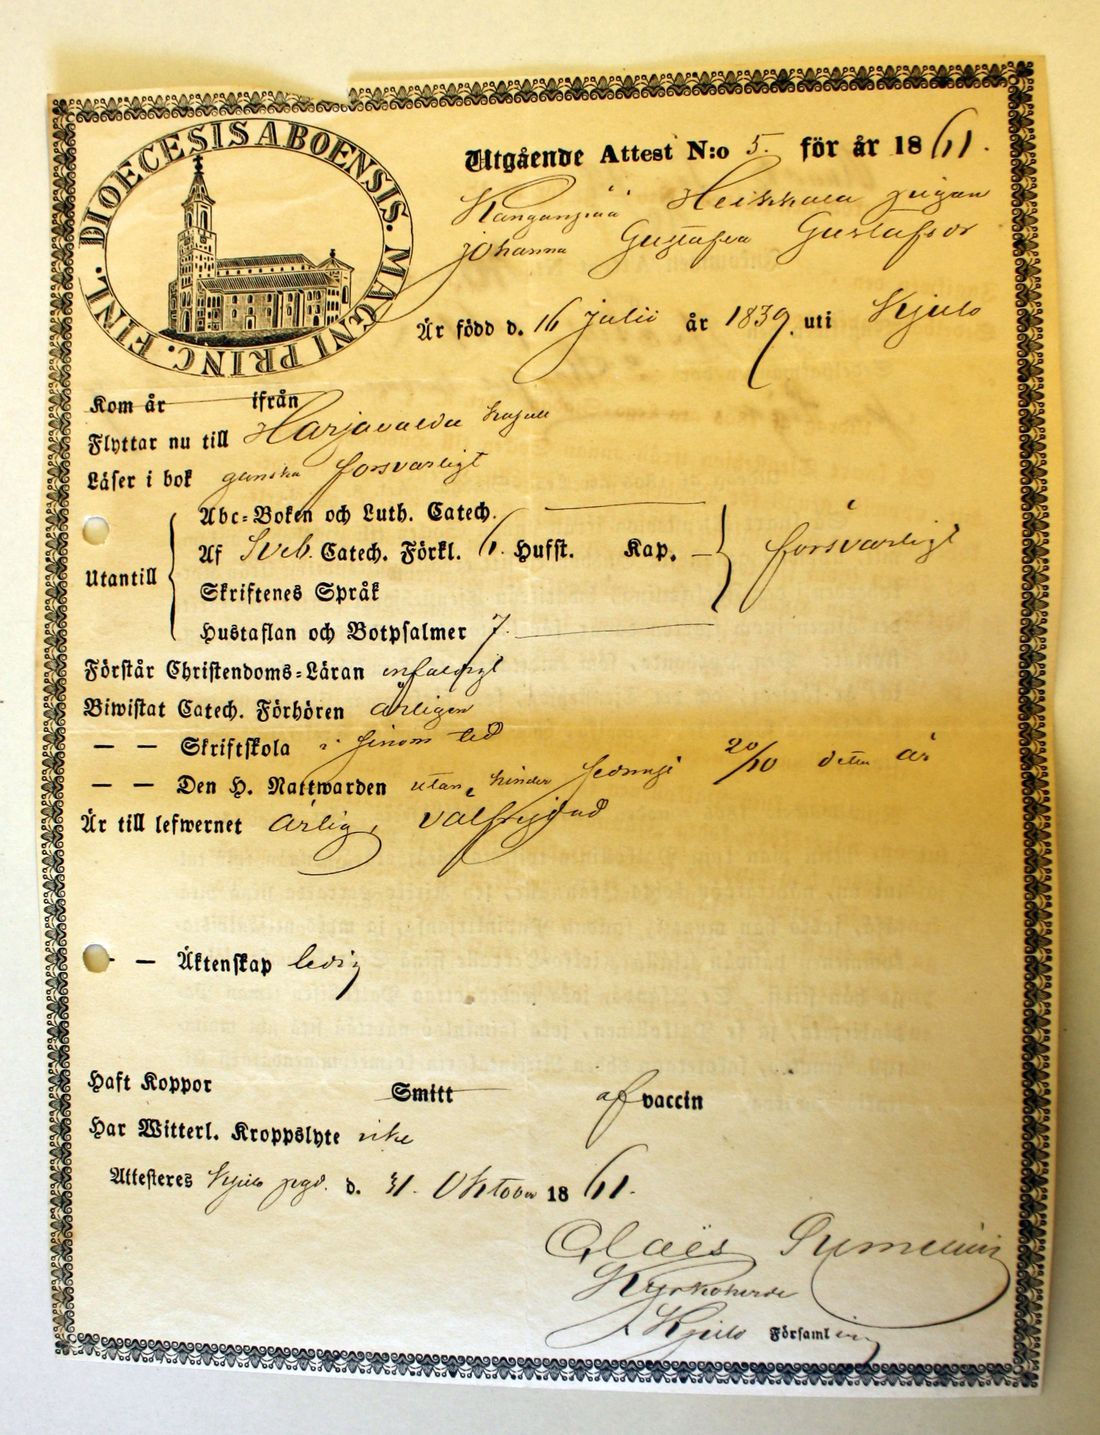 DIOECESIS ABOENSIS. MAGNI PRINC. FINL.
Utgående Attest N:o 5. för år 1861.
Heikkala pigan
Johanna Gustafva Gustafsdr
Är född d. 16 Julii år 1839. uti Kjulo
Kom år ifrån
Flyttar nu till Harjavalda
Läser i bok ganska försvarligt
Abc-Boken och Luth. Catech.
Utantill Af Sveb. Catech. Förkl. 6. Hufst. Kap. försvarligt
Skriftenes Språk
Hustaflan och Botpsalmer 7.
Förstår Christendoms-Läran enfaldigt
Biwistat Catech. Förhören årligen
— — Skriftskola i sinom tid
— — Den H. Nattwarden utan hinder 20/10 detta år
Är till lefwernet ärlig, välfrejdad
— — Äktenskap ledig
Haft Koppor Smitt af vaccin
Har Witterl. Kroppslyte icke
Attesteres Kjulo pgd. d. 31. Oktober 1861.
Claës
Kyrkoherde
i Kjulo Församling